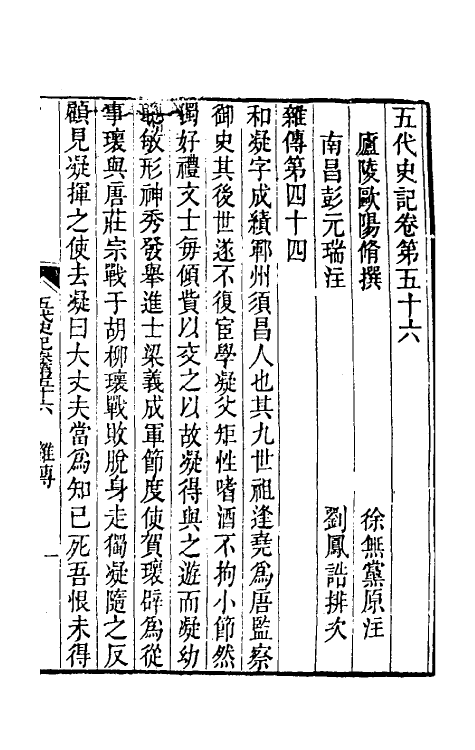 五代史記卷第五十六
廬陵歐陽脩撰 徐無黨原注
南昌彭元瑞注 劉鳳誥排次
雜傳第四十四
和凝字成績鄆州須昌人也其九世祖逢堯爲唐監察
御史其後世遂不復宦學凝父矩性嗜酒不拘小節然
獨好禮文士每傾貲以交之以故凝得與之遊而凝幼
聰敏形神秀發舉進士梁義成軍節度使賀瓌辟爲從
事瓌與唐莊宗戰于胡柳瓌戰敗脫身走獨凝隨之反
顧見凝揮之使去凝曰大丈夫當爲知已死吾恨未得
五代史記卷第五十六 雜傳 一